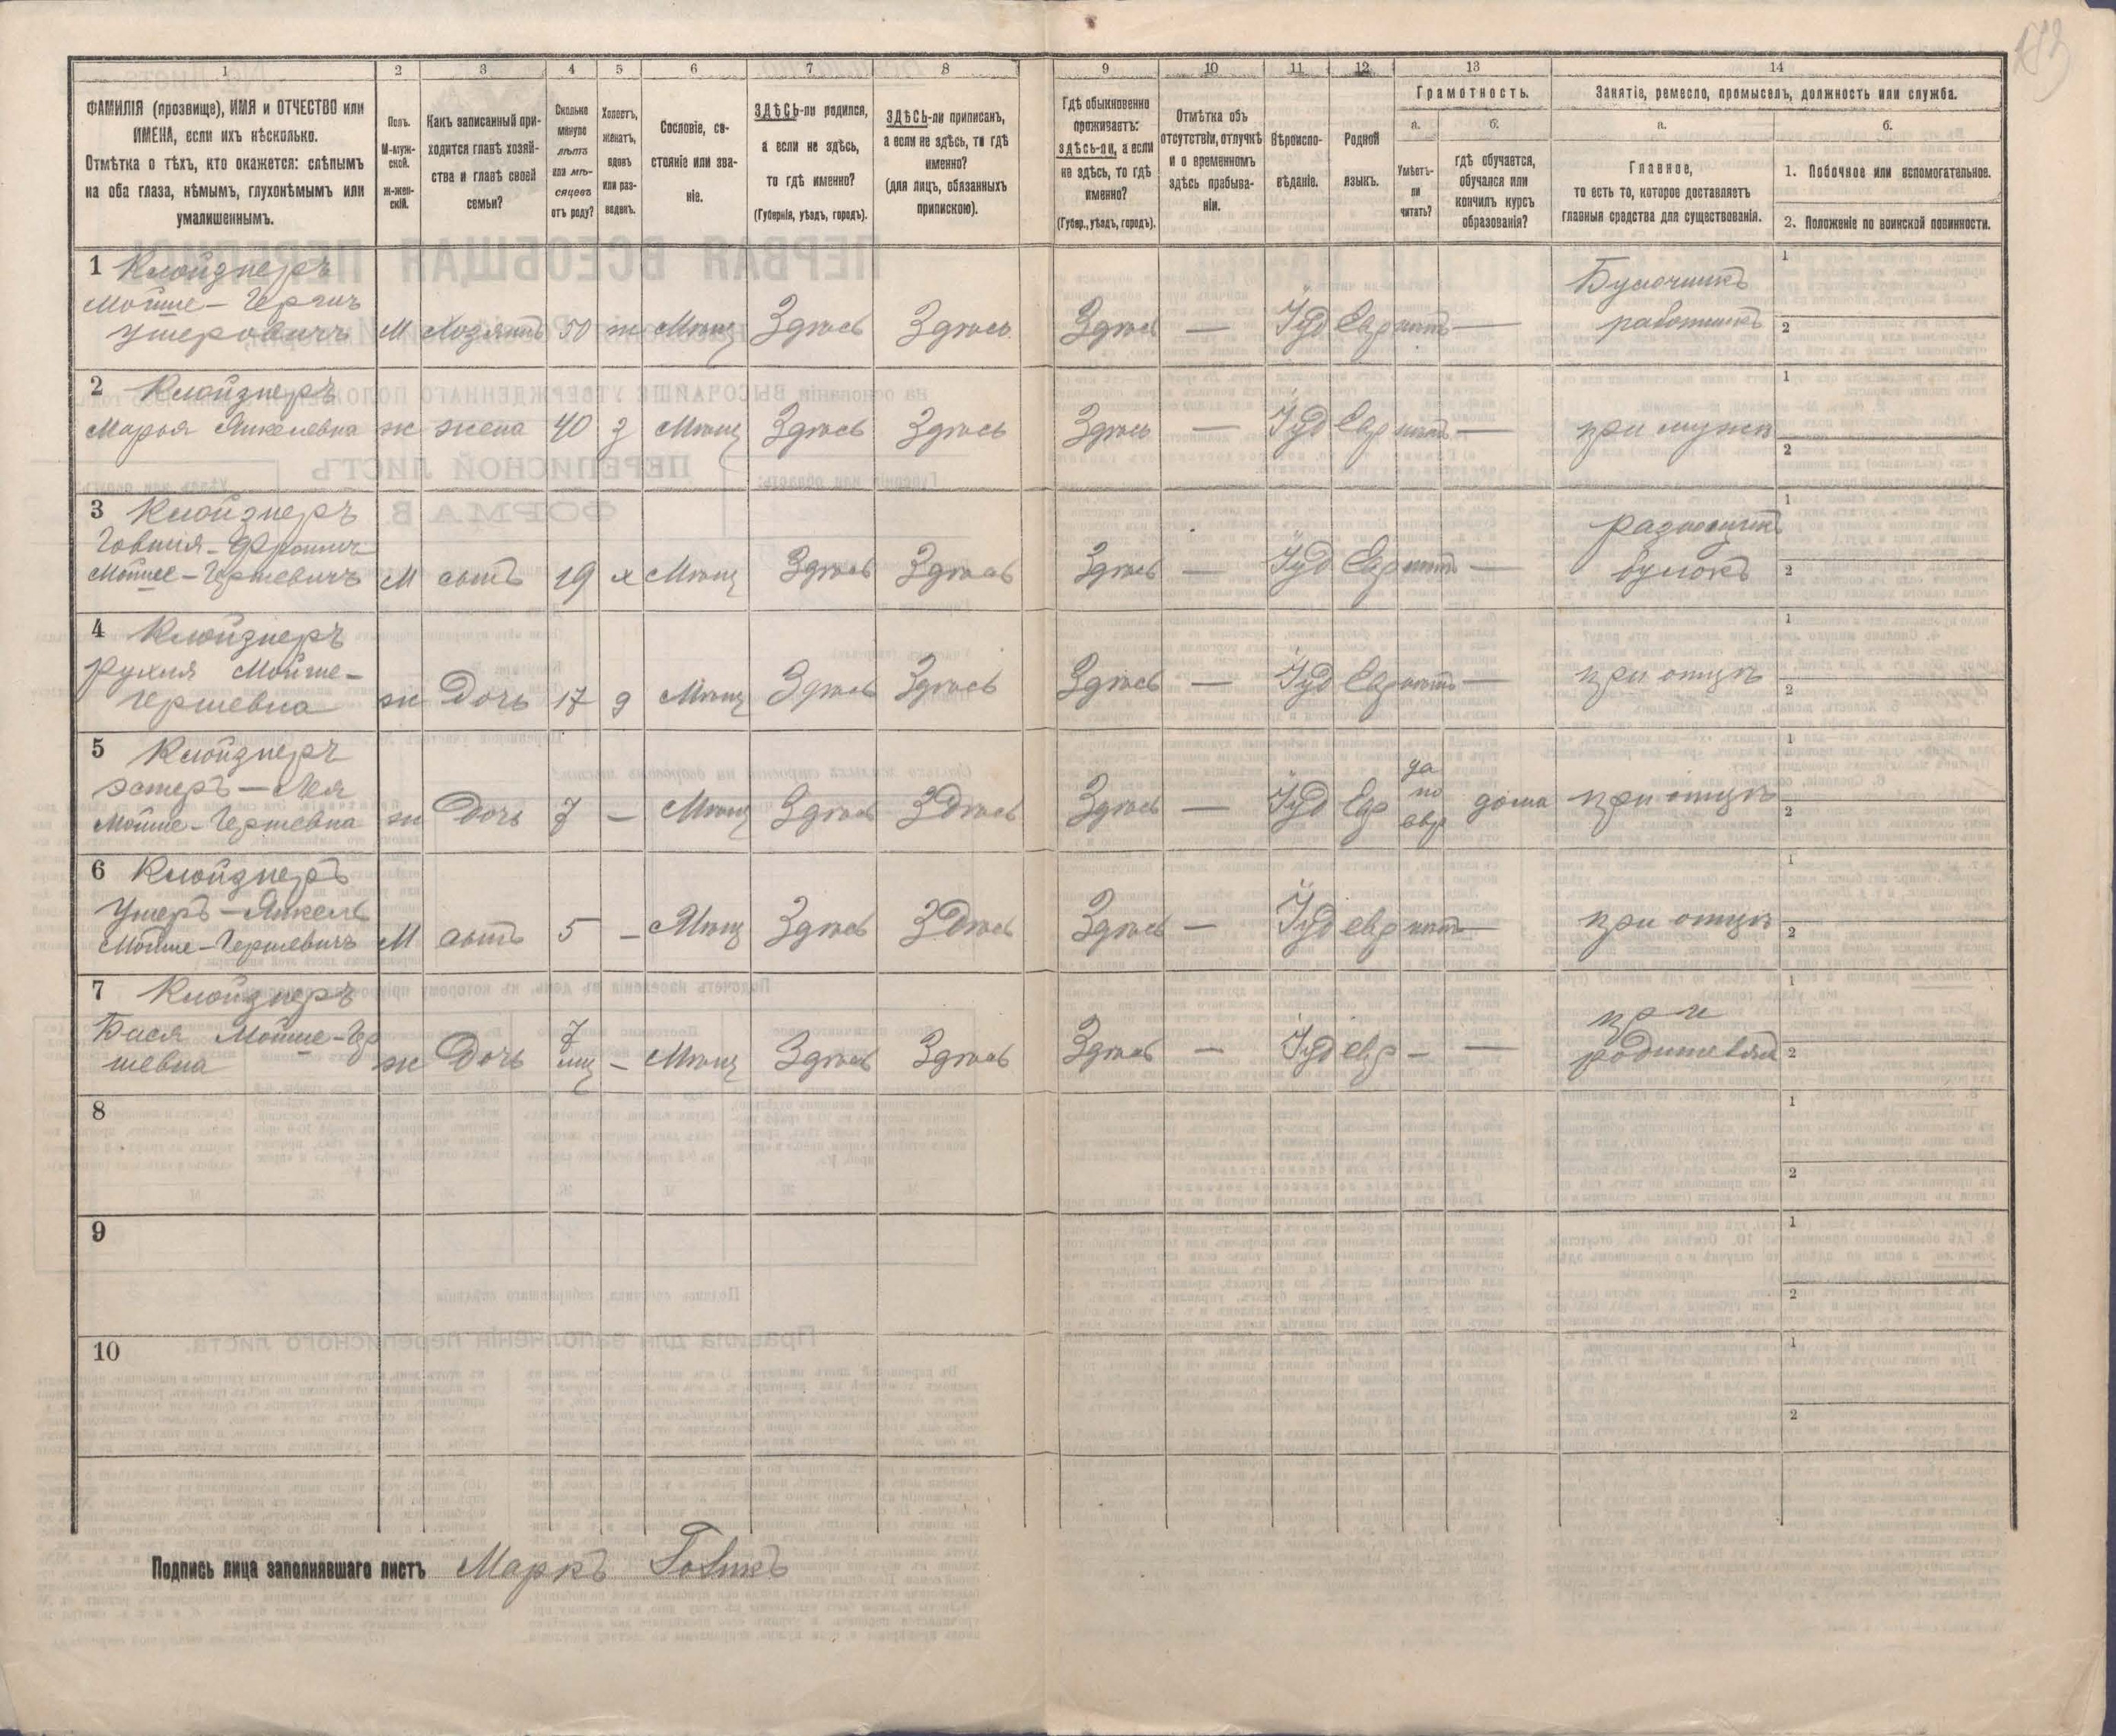 1 2 3 4 5 6 7 8 9 10 11 12 13 14
ФАМИЛІЯ (прозвище), ИМЯ и ОТЧЕСТВО или
ИМЕНА, если ихъ нѣсколько.
Отмѣтка о тѣхъ, кто окажется: слѣпымъ
на оба глаза, нѣмымъ, глухонѣмымъ или
умалишеннымъ.
Полъ.
М-муж-
ской.
ж-жен-
скій.
Какъ записанный при-
ходится главѣ хозяй-
ства и главѣ своей
семьи?
Сколько
минуло
лѣтъ
или мѣ-
сяцевъ
отъ роду?
Холостъ,
женатъ,
вдовъ
или раз-
веденъ.
Сословіе, со-
стояніе или зва-
ніе.
ЗДѢСЬ-ли родился,
а если не здѣсь,
то гдѣ именно?
(Губернія, уѣздъ, городъ).
ЗДѢСЬ-ли приписанъ,
а если не здѣсь, то гдѣ
именно?
(для лицъ, обязанныхъ
припискою).
Гдѣ обыкновенно
проживаетъ:
здѣсь-ли, а если
не здѣсь, то гдѣ
именно?
(Губер., уѣздъ, городъ).
Отмѣтка объ
отсутствіи, отлучкѣ
и о временномъ
здѣсь пребыва-
ніи.
Вѣроиспо-
вѣданіе.
Родной
языкъ.
Грамотность.
а.
Умѣетъ-
ли
читать?
б.
гдѣ обучается,
обучался или
кончилъ курсъ
образованія?
Занятіе, ремесло, промыселъ, должность или служба.
а.
Главное,
то есть то, которое доставляетъ
главныя средства для существованія.
б.
1. Побочное или вспомогательное.
2. Положеніе по воинской повинности.
1 Клойзнеръ
Мойше-Гершъ
Ушеровичъ М Хозяинъ 50 ж Мѣщ Здѣсь Здѣсь Здѣсь — Іуд Евр нѣтъ — Булочникъ
работникъ
1
2
2 Клойзнеръ
Марья Янкелевна ж жена 40 з Мѣщ Здѣсь Здѣсь Здѣсь — Іуд Евр нѣтъ — при мужѣ
1
2
3 Клойзнеръ
Мойше-Гершевичъ М сынъ 19 х Мѣщ Здѣсь Здѣсь Здѣсь — Іуд Евр нѣтъ — разнощикъ
булокъ
1
2
4 Клойзнеръ
Рухля Мойше-
Гершевна ж Дочь 17 д Мѣщ Здѣсь Здѣсь Здѣсь — Іуд Евр нѣтъ — при отцѣ
1
2
5 Клойзнеръ
Эстеръ-Лея
Мойше-Гершевна ж Дочь 7 — Мѣщ Здѣсь Здѣсь Здѣсь — Іуд Евр да
по
евр дома при отцѣ
1
2
6 Клойзнеръ
Ушеръ-Янкель
Мойше-Гершевичъ М сынъ 5 — Мѣщ Здѣсь Здѣсь Здѣсь — Іуд евр нѣтъ — при отцѣ
1
2
7 Клойзнеръ
Бася Мойше-Гер
шевна ж Дочь 7
мц — Мѣщ Здѣсь Здѣсь Здѣсь — Іуд евр — — при
родителях
1
2
8
1
2
9
1
2
10
1
2
Подпись лица заполнявшаго листъ Маркъ